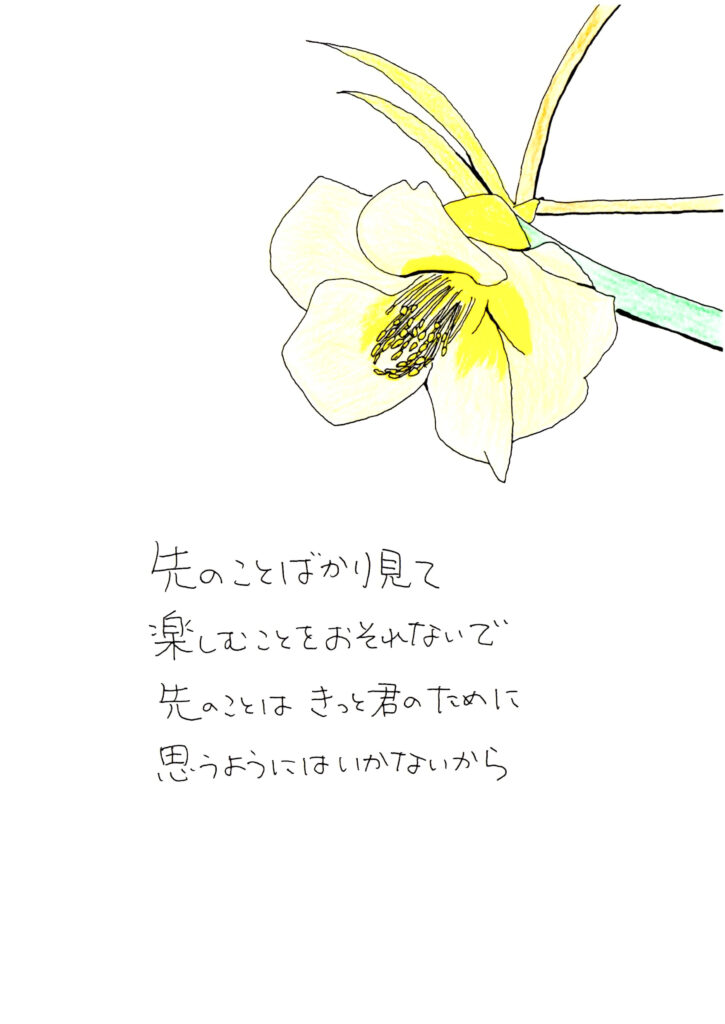 先のことばかり見て
楽しむことをおそれないで
先のことは きっと君のために
思うようにはいかないから